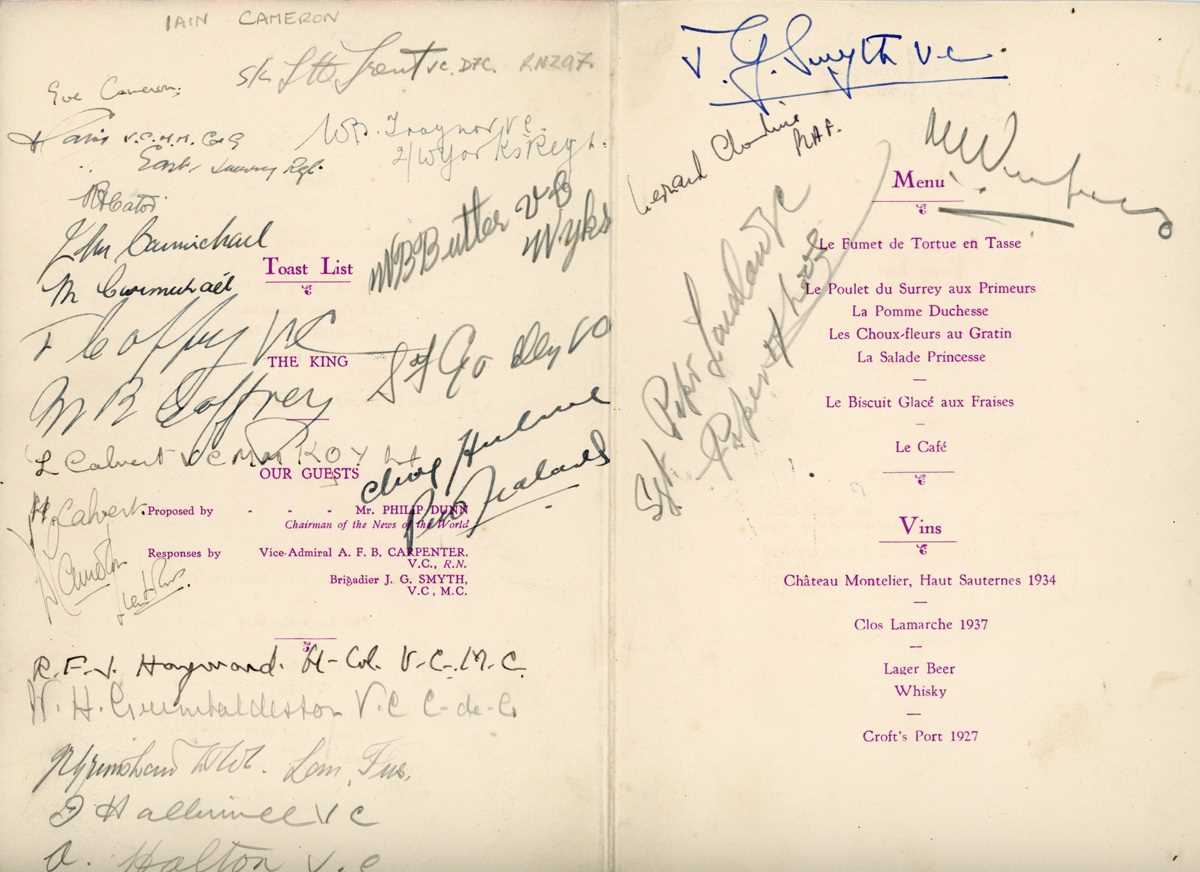 IAIN CAMERON
Trent V.C. D.F.C. R.N.Z.A.F.
Eve Cameron
V.C. M.M. C de G
East Surrey Rgt.
W.B. Traynor V.C.
2/W Yorks Regt.
H Cator
John Carmichael
M Carmichael
Toast List
W B Butler VC
W. Yks
Coffey VC
THE KING
Sgt Godley VC
M B Coffrey
L Calvert VC MM KOYLI
OUR GUESTS
Hulme
H. Calvert
Proposed by - - - Mr. PHILIP DUNN
Chairman of the News of the World
Responses by Vice-Admiral A. F. B. CARPENTER.
V.C., R.N.
Brigadier J. G. SMYTH,
V.C., M.C.
R. F. J. Hayward. Lt-Col. V.C. M.C.
W. H. Grimbaldeston V.C C-de-G
Lan. Fus.
Halliwell VC
A. Halton V.C
J. G. Smyth V.C.
Leonard Cheshire
RAF.
Menu
Le Fumet de Tortue en Tasse
Le Poulet du Surrey aux Primeurs
La Pomme Duchesse
Les Choux-fleurs au Gratin
La Salade Princesse
Le Biscuit Glacé aux Fraises
Le Café
Sgt. Piper Laidlaw VC
Piper of Loos
Vins
Château Montelier, Haut Sauternes 1934
Clos Lamarche 1937
Lager Beer
Whisky
Croft's Port 1927